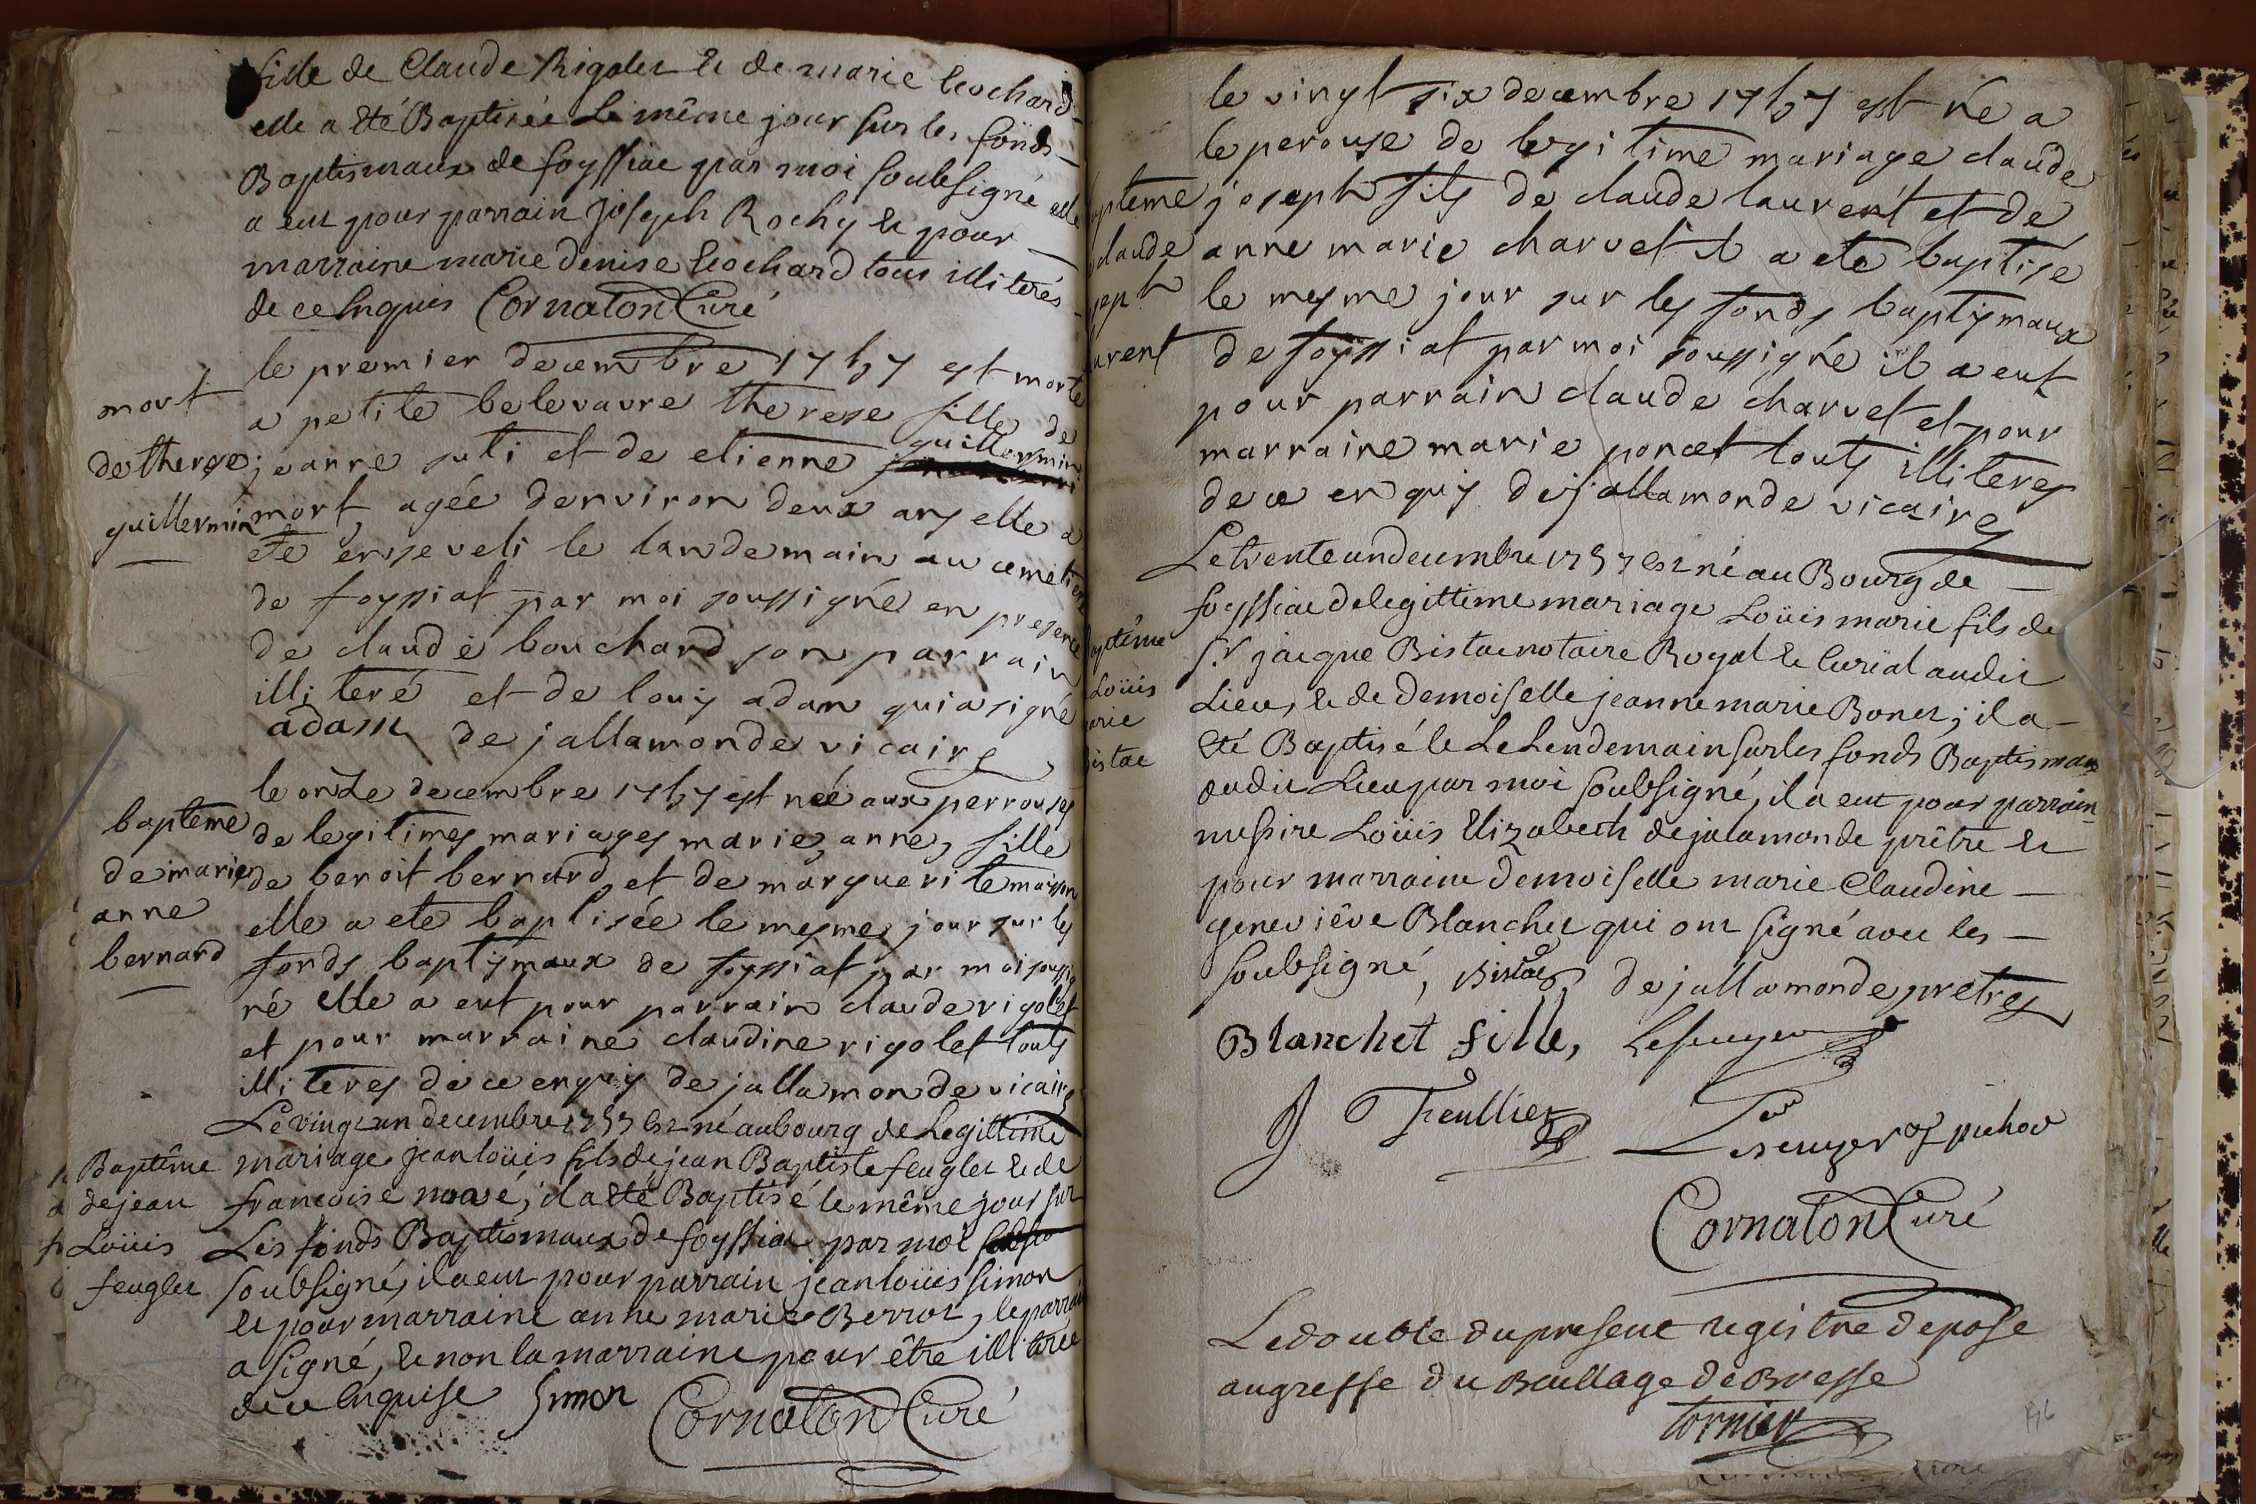 fille de Claude Rigolet & de marie Cochard
elle a été Baptisée Le même jour sur les fonds
Baptismaux de foyssiac par moi soubsigné elle
a eut pour parrain Joseph Rochy & pour
marraine marie denise Cochard tous illiterés
de ce Enquis Cornaton Curé
le premier decembre 1757 est morte
a petite belevavre therese fille de
jeanne suti et de etienne guillermin
mort agée denviron deux ans elle a
ete enseveli le landemain au cemetiere
de foyssiat par moi soussigné en presence
de claude bouchard son parrain
illiteré et de louis adam qui a signé
adam de jallamonde vicaire
mort
de therese
guillermin
le onze decembre 1757 est née aux perrouses
de legitimes mariages marie anne, fille
de benoit bernard et de marguerite
elle a ete baptisée le mesme jour sur les
fonds baptismaux de foyssiat par moi soussig
né elle a eut pour parrain claude rigolet
et pour marraine claudine rigolet touts
illiteres de ce enquis de jallamonde vicaire
bapteme
de marie
anne
bernard
Le vingt un decembre 1757 est né au bourg de Legittime
mariage jean loüis fils de jean Baptiste feuglet & de
francoise il a été Baptisé le même jour sur
Les fonds Baptismaux de foyssiac par moi
soubsigné, il a eut pour parrain jean loüis simon
& pour marraine anne marie Berrot, le parrain
a signé, & non la marraine pour être illitérée
de ce Enquise Simon Cornaton Curé
Baptême
de jean
Loüis
feuglet
le vingt six decembre 1757 est né a
le perouse de legitime mariage claude
joseph fils de claude laurent et de
anne marie charvet il a ete baptise
le mesme jour sur les fonds baptismaux
de foyssiat par moi soussigné il a eut
pour parrain claude charvet et pour
marraine marie poncet touts illiteres
de ce enquis de jallamonde vicaire
apteme
claude
seph
urent
Le trente un decembre 1757 est né au Bourg de
foyssiac de legittime mariage Loüis marie fils de
Sr. jacque Bistac notaire Royal & Curial audit
Lieu, & de Demoiselle jeanne marie Bonet; il a
été Baptisé le Le Lendemain sur les fonds Baptismaux
dudit Lieu par moi soubsigné, il a eut pour parrain
messire Loüis Elizabeth de jalamonde prêtre &
pour marraine Demoiselle marie Claudine
geneviêve Blanchet qui ont signé avec les
soubsigné, Bistac de jallamonde pretre
Blanchet fille,
Cornaton Curé
aptême
Loüis
arie
istac
Le double du present registre depose
au greffe du Baillage de Bresse
tornier